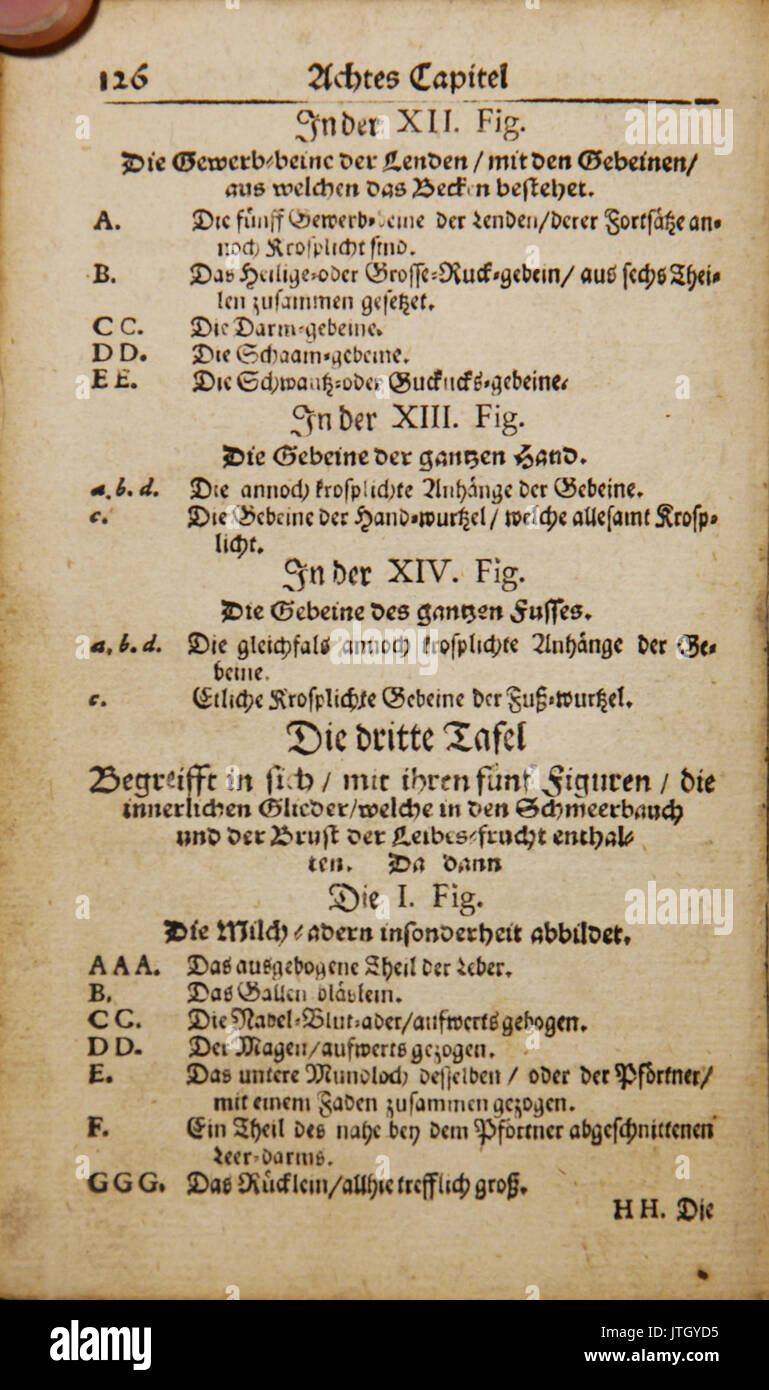 126 Achtes Capitel
In der XII. Fig.
Die Gewerb-beine der Lenden / mit den Gebeinen/
aus welchen das Becken bestehet.
A. Die fünff Gewerb-beine der Lenden/derer Fortsätze an-
noch Krosplicht sind.
B. Das Heilige-oder Grosse-Ruck-gebein/ aus sechs Thei-
len zusammen gesetzet.
C C. Die Darm-gebeine.
D D. Die Schaam-gebeine.
E E. Die Schwantz-oder Guckucks-gebeine.
In der XIII. Fig.
Die Gebeine der gantzen Hand.
a, b. d. Die annoch krosplichte Anhänge der Gebeine.
c. Die Gebeine der Hand-wurtzel / welche allesamt Krosp-
licht.
In der XIV. Fig.
Die Gebeine des gantzen Fusses.
a, b. d. Die gleichfals annoch krosplichte Anhänge der Ge-
beine.
c. Etliche Krosplichte Gebeine der Fuß-wurtzel.
Die dritte Tafel
Begreifft in sich / mit ihren fünf Figuren / die
innerlichen Glieder/welche in den Schmeerbauch
und der Brust der Leibes-frucht enthal-
ten. Da dann
Die I. Fig.
Die Milch-adern insonderheit abbildet.
A A A. Das ausgebogene Theil der Leber.
B. Das Gallen bläslein.
C C. Die Nabel-Blut-ader/aufwerts gebogen.
D D. Der Magen/aufwerts gezogen.
E. Das untere Mundloch desselben / oder der Pförtner/
mit einem Faden zusammen gezogen.
F. Ein Theil des nahe bey dem Pförtner abgeschnittenen
Leer-darms.
G G G. Das Rücklein/allhie trefflich groß.
H H. Die
alamy
alamy
alamy
alamy
a
a
a
a
alamy
Image ID: JTGYD5
www.alamy.com